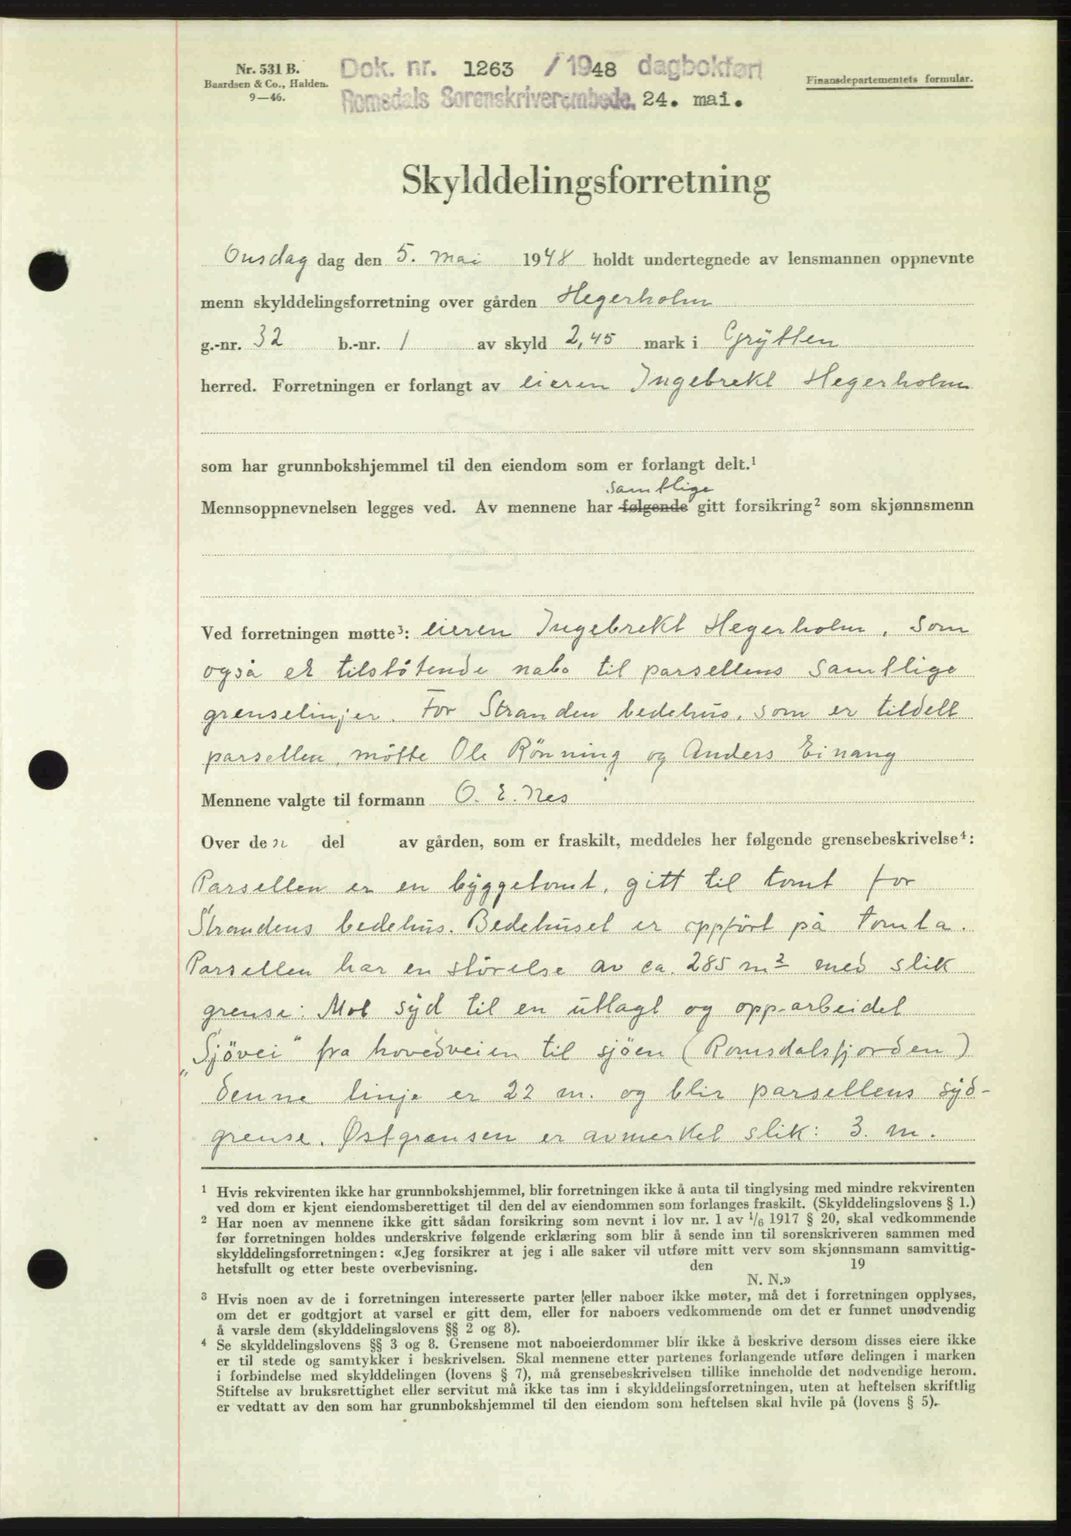 Nr. 531 B.
Baardsen & Co., Halden.
9—46.
Dok. nr. 1263 /1948 dagbokført
Romsdals Sorenskriverembede. 24. mai.
Finansdepartementets formular.
Skylddelingsforretning
Onsdag dag den 5. mai 1948 holdt undertegnede av lensmannen oppnevnte
menn skylddelingsforretning over gården Hegerholm
g.-nr. 32 b.-nr. 1 av skyld 2,45 mark i Grytten
herred. Forretningen er forlangt av eieren Ingebrekt Hegerholm
som har grunnbokshjemmel til den eiendom som er forlangt delt.¹
samtlige
Mennsoppnevnelsen legges ved. Av mennene har følgende gitt forsikring² som skjønnsmenn
Ved forretningen møtte³: eieren Ingebrekt Hegerholm, som
også er tilstøtende nabo til parsellens samtlige
grenselinjer. For Stranden bedehus, som er tildelt
parsellen, møtte Ole Rønning og Anders Einang
Mennene valgte til formann O. E. Nes
Over den del av gården, som er fraskilt, meddeles her følgende grensebeskrivelse⁴:
Parsellen er en byggetomt, gitt til tomt for
Strandens bedehus. Bedehuset er oppført på tomta.
Parsellen har en størelse av ca. 285 m² med slik
grense: Mot syd til en utlagt og opparbeidet
"Sjövei" fra hovedveien til sjöen (Romsdalsfjorden)
denne linje er 22 m. og blir parsellens syd-
grense. Østgrensen er avmerket slik: 3. m.
¹ Hvis rekvirenten ikke har grunnbokshjemmel, blir forretningen ikke å anta til tinglysing med mindre rekvirenten
ved dom er kjent eiendomsberettiget til den del av eiendommen som forlanges fraskilt. (Skylddelingslovens § 1.)
² Har noen av mennene ikke gitt sådan forsikring som nevnt i lov nr. 1 av 1/6 1917 § 20, skal vedkommende
før forretningen holdes underskrive følgende erklæring som blir å sende inn til sorenskriveren sammen med
skylddelingsforretningen: «Jeg forsikrer at jeg i alle saker vil utføre mitt verv som skjønnsmann samvittig-
hetsfullt og etter beste overbevisning. den 19
N. N.»
³ Hvis noen av de i forretningen interesserte parter eller naboer ikke møter, må det i forretningen opplyses,
om det er godtgjort at varsel er gitt dem, eller for naboers vedkommende om det er funnet unødvendig
å varsle dem (skylddelingslovens §§ 2 og 8).
⁴ Se skylddelingslovens §§ 3 og 8. Grensene mot naboeierdommer blir ikke å beskrive dersom disses eiere ikke
er til stede og samtykker i beskrivelsen. Skal mennene etter partenes forlangende utføre delingen i marken
i forbindelse med skylddelingen (lovens § 7), må grensebeskrivelsen tillike inneholde det nødvendige herom.
Stiftelse av bruksrettighet eller servitut må ikke tas inn i skylddelingsforretningen, uten at heftelsen skriftlig
er vedtatt av den som har grunnbokshjemmel til den eiendom som heftelsen skal hvile på (lovens § 5).